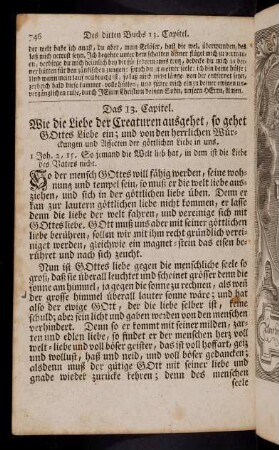 746 Des dritten Buchs 13. Capitel.
Das 13. Capitel.
Wie die Liebe der Creaturen ausgehet, so gehet
GOttes Liebe ein; und von den herrlichen Wür-
ckungen und Affecten der göttlichen Liebe in uns.
1 Joh. 2, 15. So jemand die Welt lieb hat, in dem ist die Liebe
des Vaters nicht.
So der mensch GOttes will fähig werden, seine woh-
nung und tempel seyn, so muß er die welt liebe aus-
ziehen, und sich in der göttlichen liebe üben. Denn er
kan zur lautern göttlichen liebe nicht kommen, er lasse
denn die liebe der welt fahren, und vereinige sich mit
GOttes liebe. GOtt muß uns aber mit seiner göttlichen
liebe berühren, sollen wir mit ihm recht gründlich verei-
niget werden, gleichwie ein magnet-stein das eisen be-
rühret und nach sich zeucht.
Nun ist GOttes liebe gegen die menschliche seele so
groß, daß sie überall leuchtet und scheinet grösser denn die
sonne am himmel, ja gegen die sonne zu rechnen, als wenn
der grosse himmel überall lauter sonne wäre; und hat
also der ewige GOtt, der die liebe selber ist, keine
schuld; aber sein licht und gaben werden an den menschen
verhindert. Denn so er kommt mit seiner milden, zar-
ten und edlen liebe, so findet er der menschen hertz voll
welt-liebe und voll böser geister, das ist voll hoffart, geiz
und wollust, haß und neid, und voll böser gedancken;
alsdenn muß der gütige GOtt mit seiner liebe und
gnade wieder zurücke kehren; denn des menschen
seele